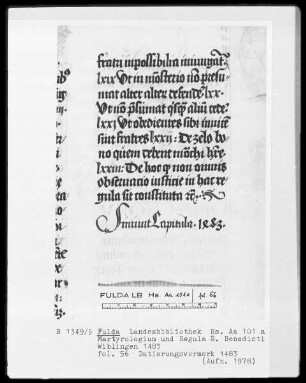 fratri inpossibilia iniungāt̄
lxix Ut in mōsterio nō presu-
mat alter alter defende lxx
Ut nō p̄sumat qsq̄ aliū cede
lxxj Ut obedientes sibi inuicē
sint fratres lxxij De zelo bo
no quem debent mōchi h̄re
lxxiij De hoc q̨ non omnis
obseruatio iusticie in hac re
gula sit constituta rc̄
Finiunt Capitula 1483
FULDA LB Hs. Aa 101a fol. 56
B 1349/5 Fulda Landesbibliothek Hs. Aa 101 a
Martyrologium und Regula S. Benedicti
Wiblingen 1483
fol. 56 Datierungsvermerk 1483
(Aufn. 1978)